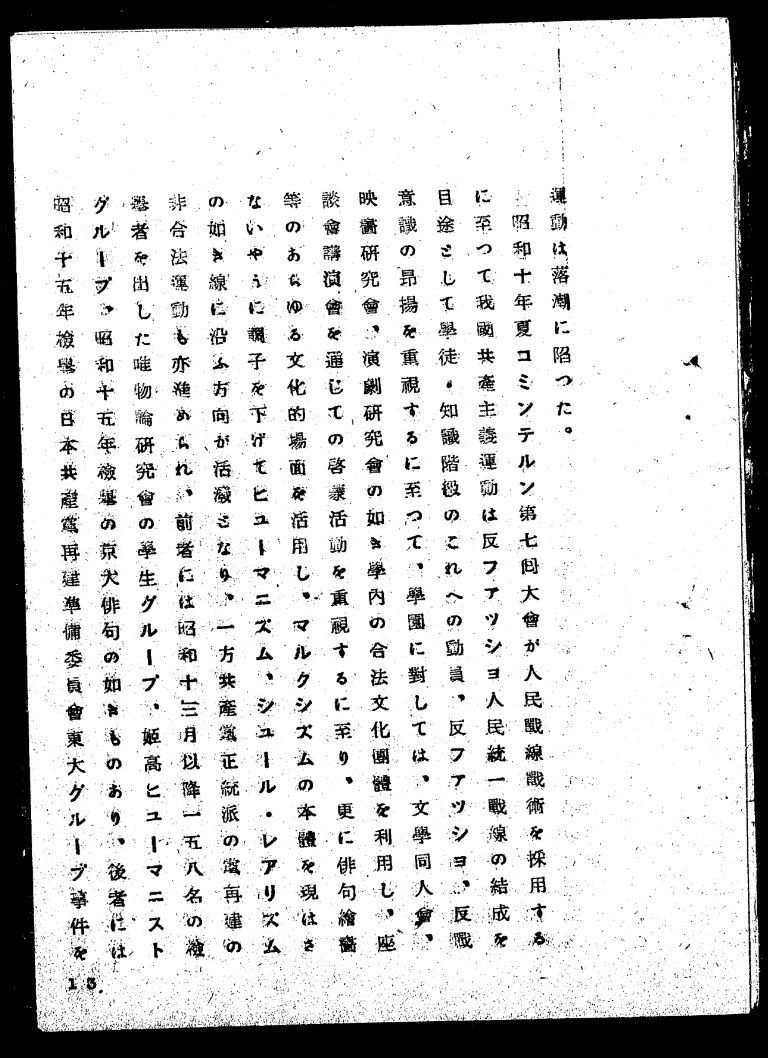 運動は落潮に陷つた。
昭和十年夏コミンテルン第七回大會が人民戰線戰術を採用する
に至つて我國共產主義運動は反フアツシヨ人民統一戰線の結成を
目途として學徒・知識階級のこれへの動員、反フアツシヨ、反戰
意識の昂揚を重視するに至つて、學園に對しては、文學同人會、
映畫研究會、演劇研究會の如き學內の合法文化團體を利用し、座
談會講演會を通じての啓蒙活動を重視するに至り、更に俳句繪畫
等のあらゆる文化的場面を活用し、マルクシズムの本體を現はさ
ないやうに調子を下げてヒユーマニズム、シユール・レアリズム
の如き線に沿ふ方向が活潑となり、一方共產黨正統派の黨再建の
非合法運動も亦進められ、前者には昭和十三月以降一五八名の檢
擧者を出した唯物論研究會の學生グループ、姬高ヒユーマニスト
グループ、昭和十五年檢擧の京大俳句の如きものあり、後者には
昭和十五年檢擧の日本共產黨再建準備委員會東大グループ事件を
13.